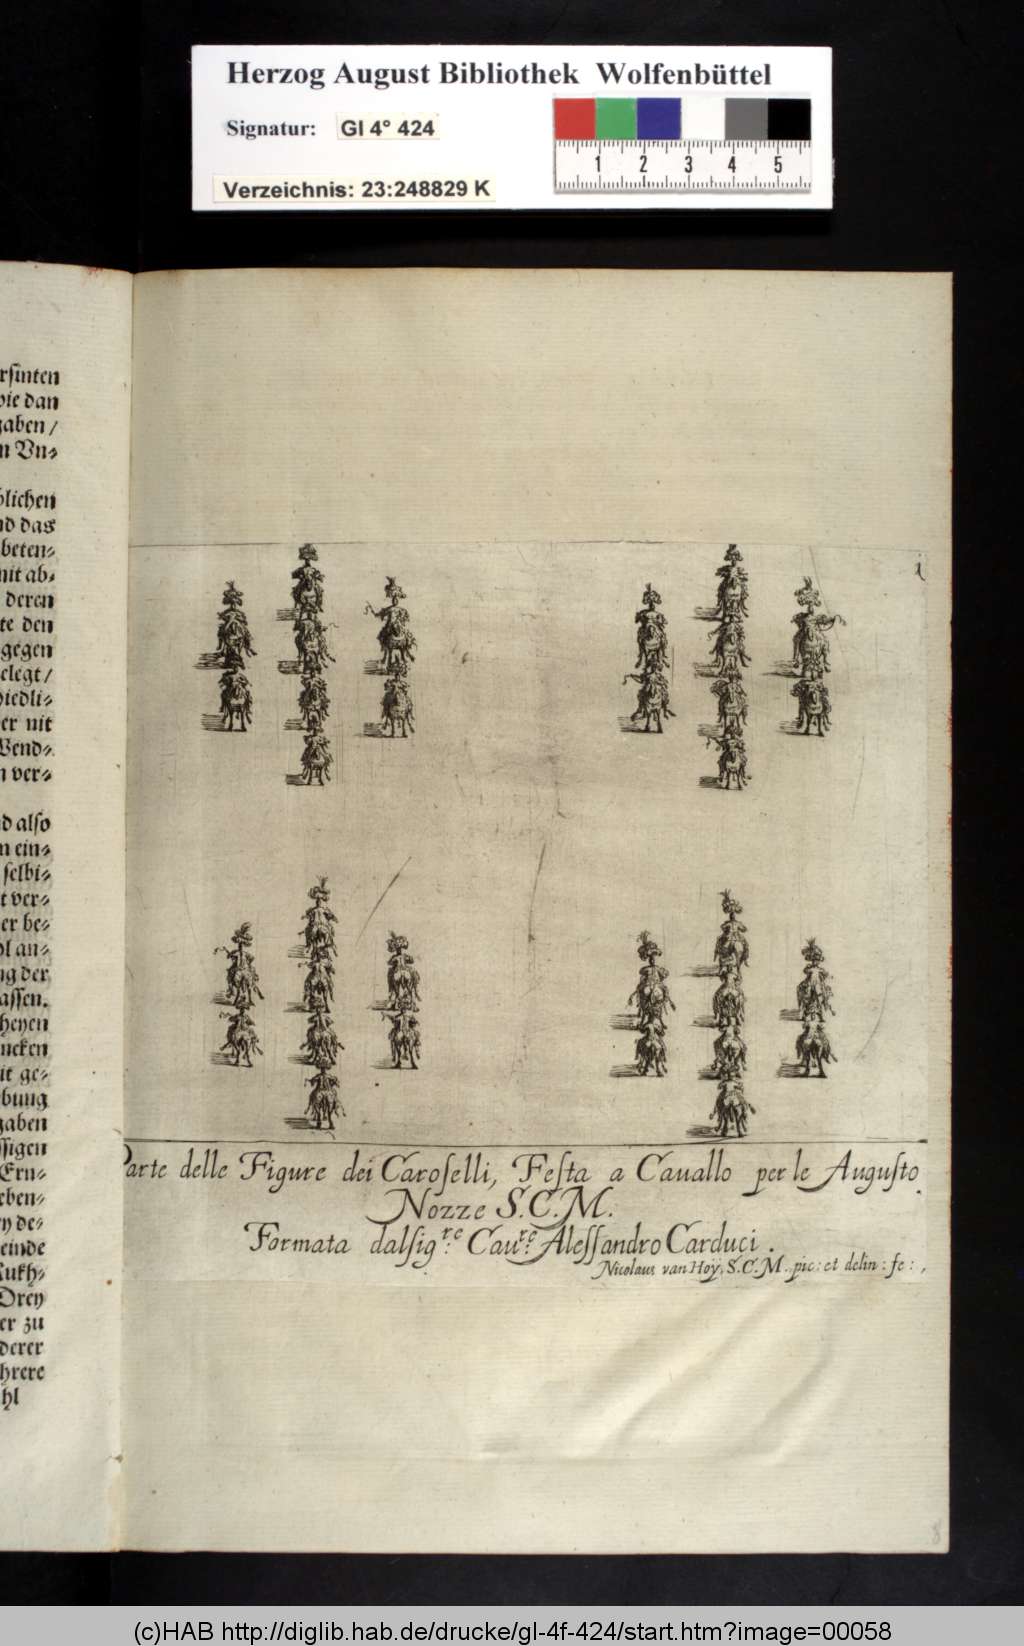 Herzog August Bibliothek Wolfenbüttel
Signatur: Gl 4° 424
1 2 3 4 5
Verzeichnis: 23:248829 K
rſinten
wie dan
gaben /
n Vn⸗
blichen
nd das
beten⸗
mit ab⸗
deren
te den
gegen
elegt/
hiedli⸗
er nit
Wend⸗
n ver⸗
nd alſo
n ein⸗
ſelbi⸗
t ver⸗
er be⸗
ol an⸗
ng der
aſſen.
heyen
ucken
it ge⸗
bung
gaben
ſſigen
Ern⸗
eben⸗
ey de⸗
einde
Rukh⸗
Drey
er zu
derer
hrere
hl
1
Parte delle Figure dei Caroſelli, Feſta a Cauallo per le Auguſto
Nozze S.C.M.
Formata dalſig.re Cau.re Aleſſandro Carduci.
Nicolaus van Hoÿ, S.C.M. pic: et delin: fe:,
8
(c)HAB http://diglib.hab.de/drucke/gl-4f-424/start.htm?image=00058